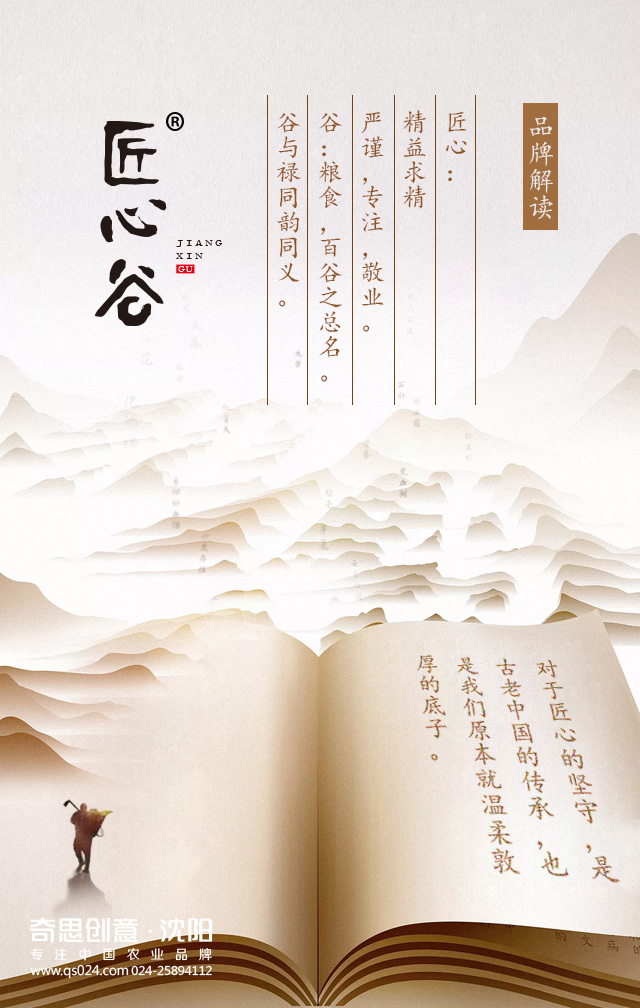 品牌解读
匠心：
精益求精
严谨，专注，敬业。
谷：粮食，百谷之总名。
谷与禄同韵同义。
匠心谷®
JIANG
XIN
GU
对于匠心的坚守，是
古老中国的传承，也
是我们原本就温柔敦
厚的底子。
奇思创意·沈阳
专注中国农业品牌
www.qs024.com 024-25894112